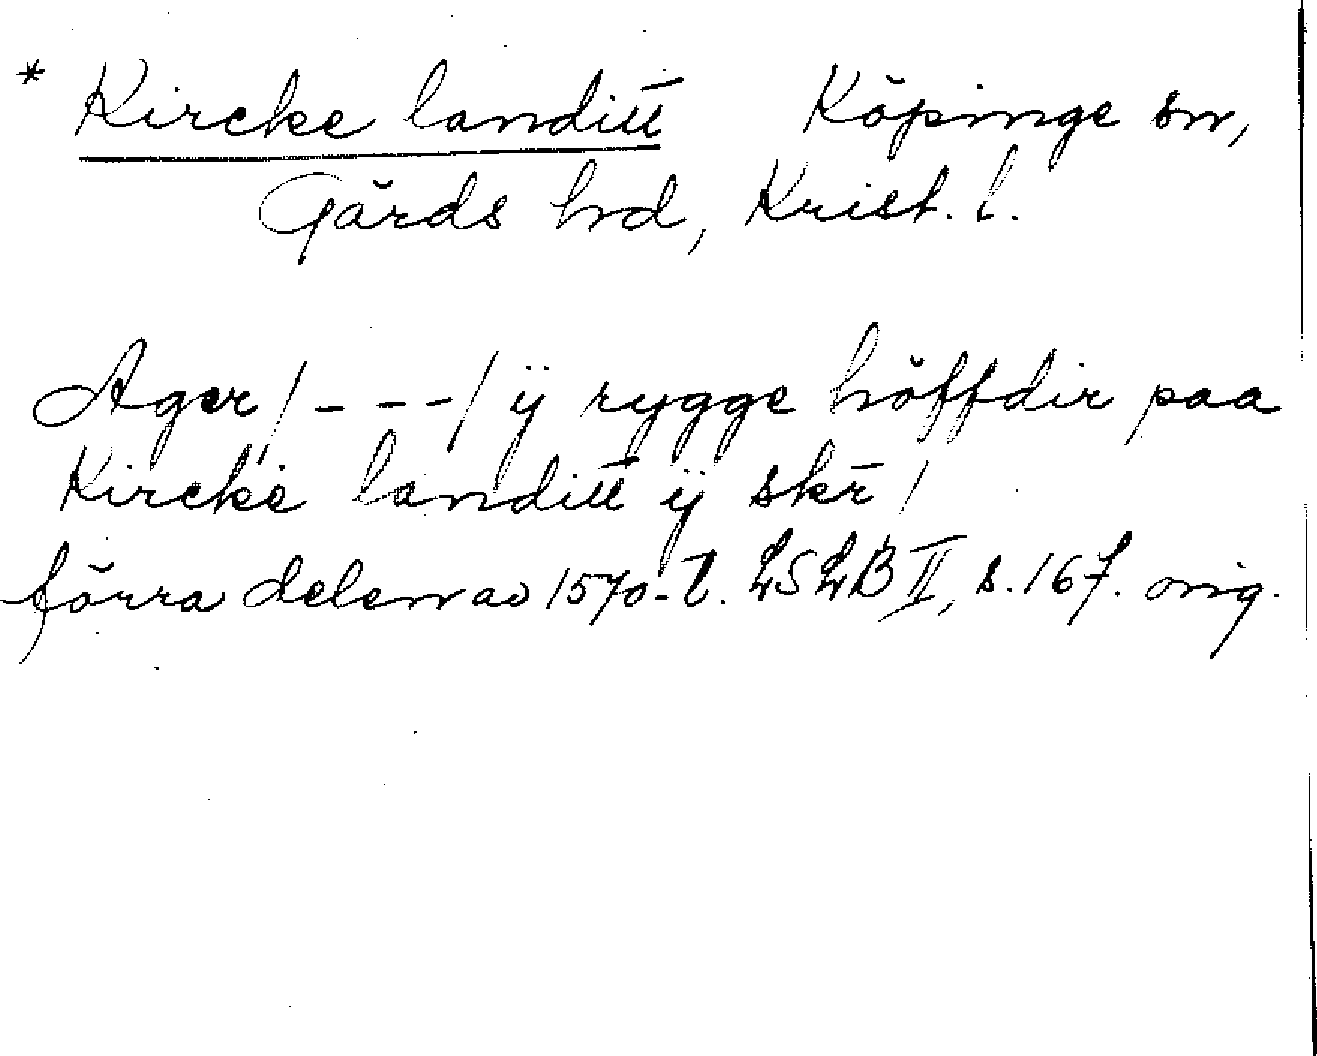 * Kircke landitt Köpinge sn,
Gärds hrd, Krist. l.
Ager / - - - / ÿ rygge höffdir paa
Kircke landitt ÿ skr /
förra delen av 1570-t. LSLB II, s. 167. orig.